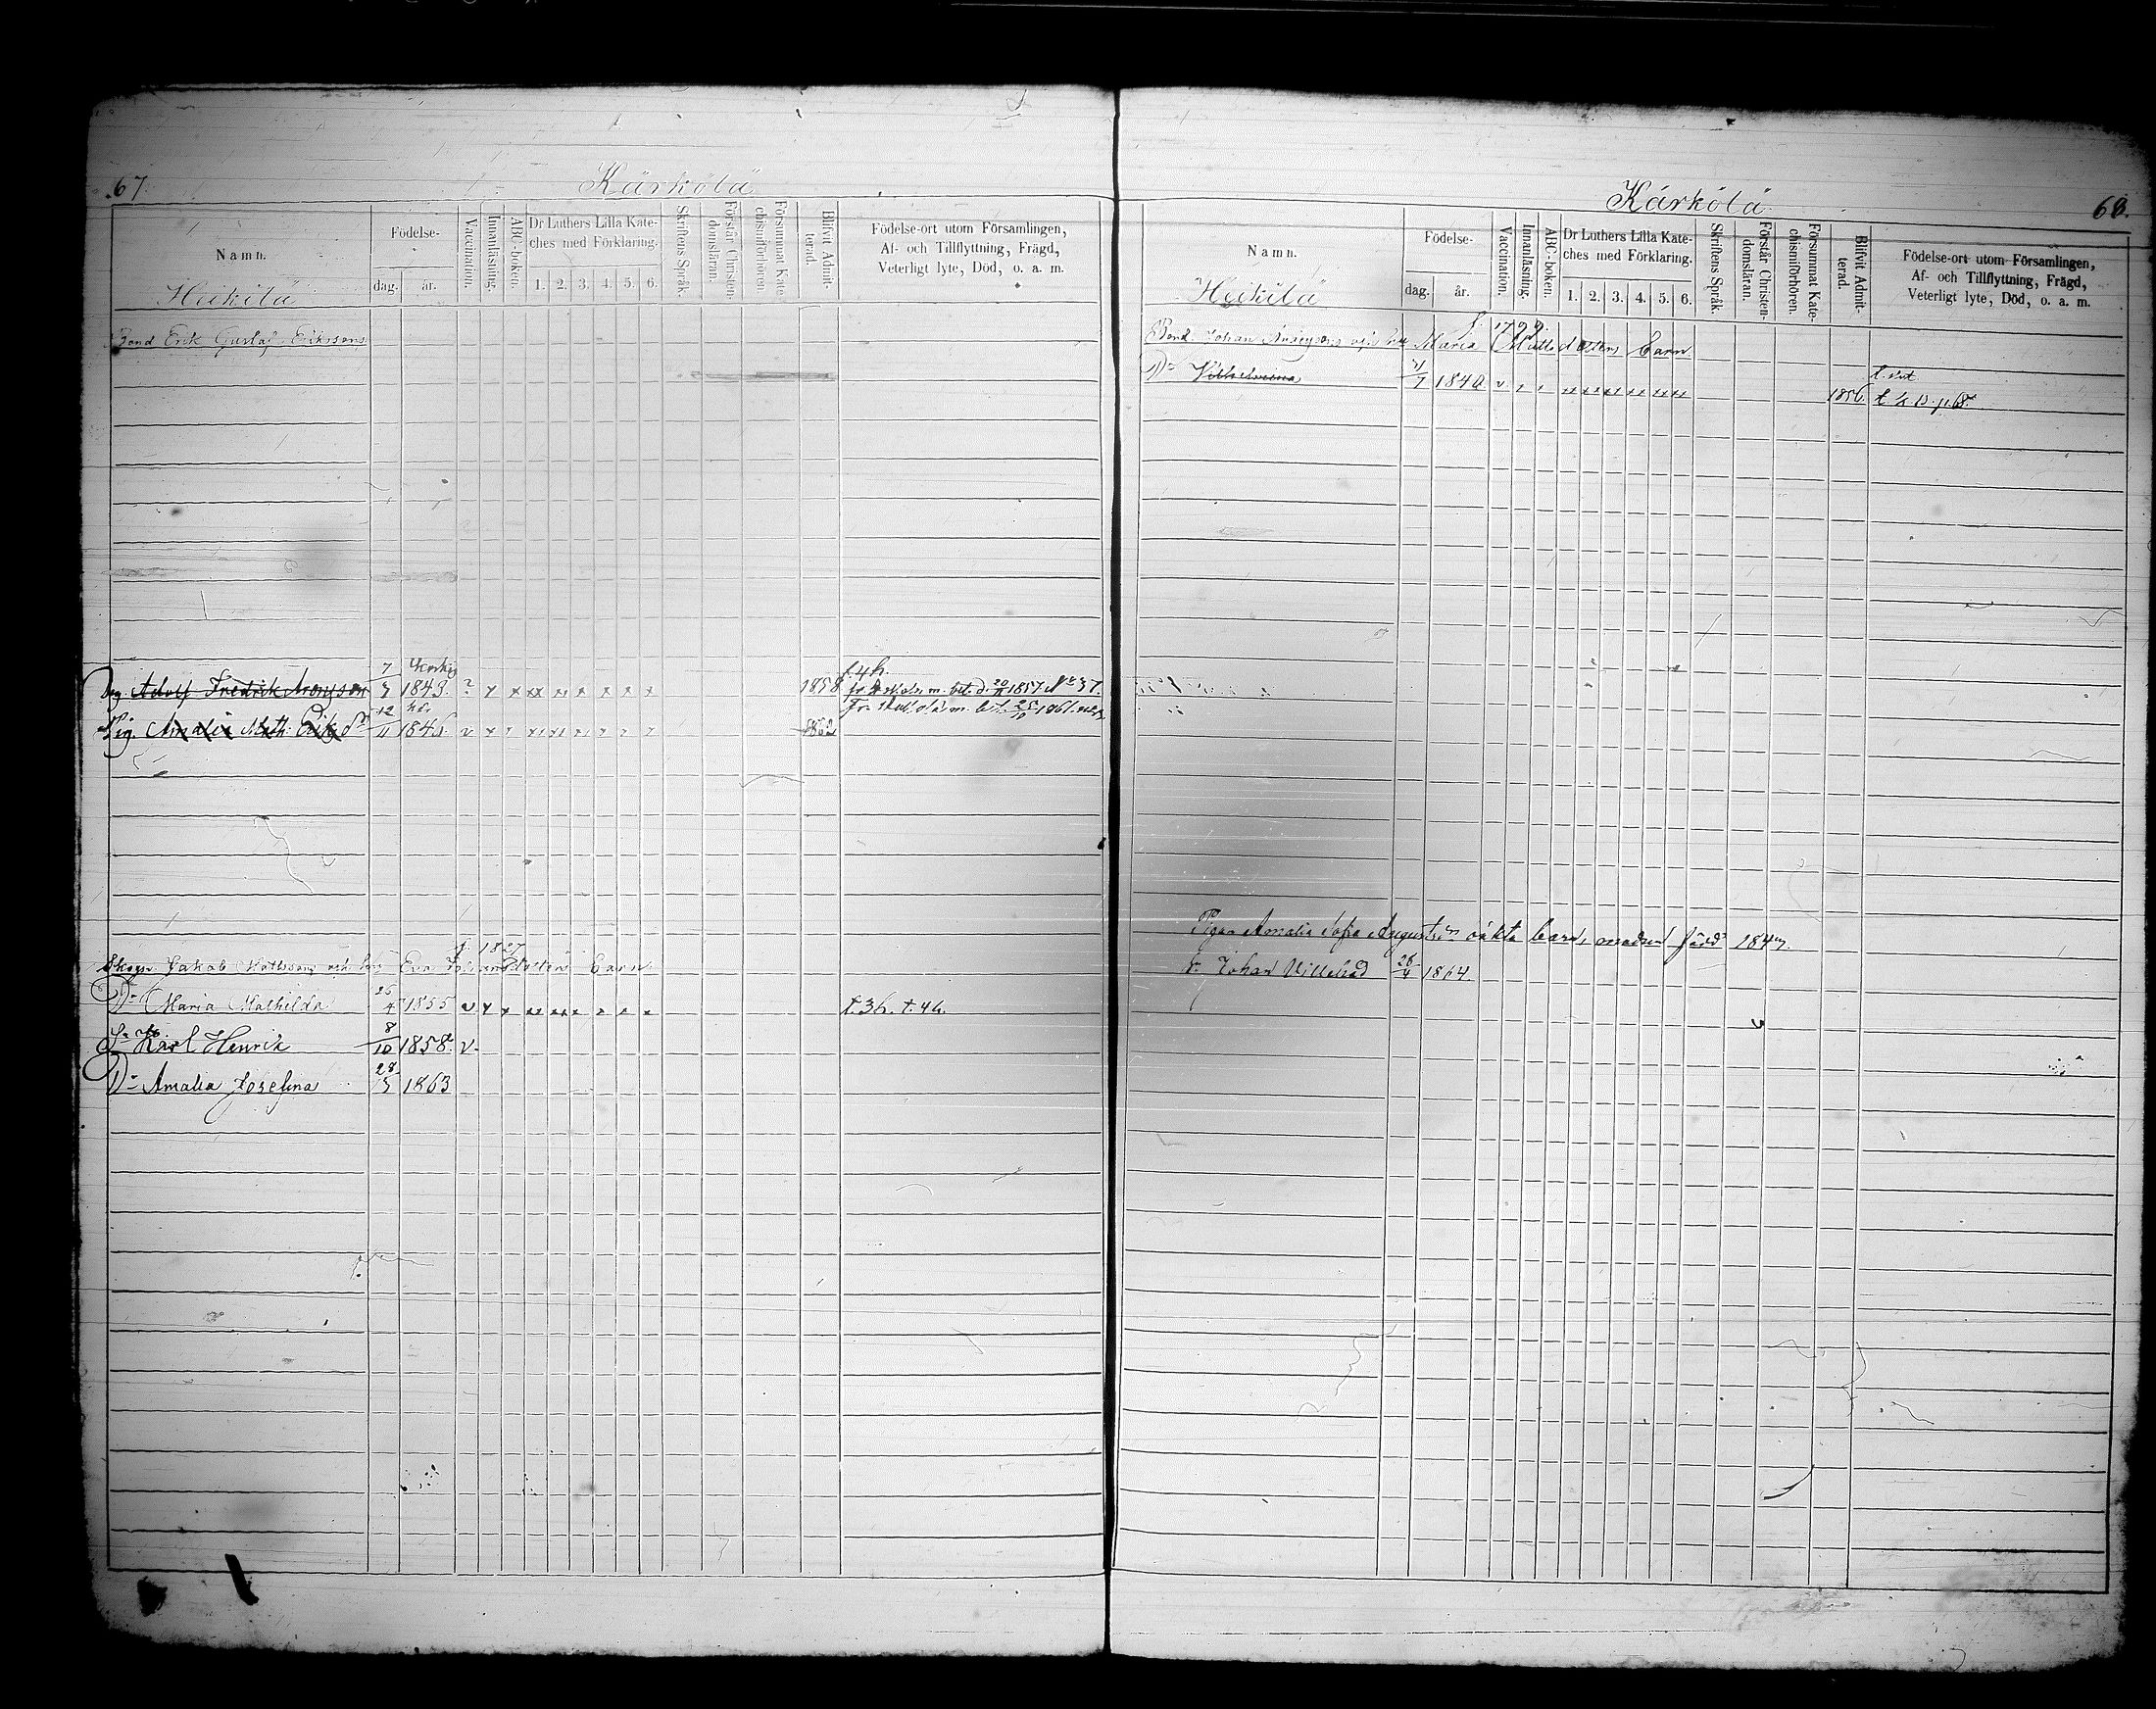 67.
Kärkölä
Namn.
Födelse-
dag.
år.
Vaccination.
Innanläsning.
ABC-boken.
Dr Luthers Lilla Kate-
ches med Förklaring.
1. 2. 3. 4. 5. 6.
Skriftens Språk.
Förstår Christen-
domsläran.
Försummat Kate-
chismiförhören.
Blifvit Admit-
terad.
Födelse-ort utom Församlingen,
Af- och Tillflyttning, Frägd,
Veterligt lyte, Död, o. a. m.
Heikilä
Bond Erik Gustaf Erikssons
Adolf Fredrik Aronsson 7/3 1843. ? 1858 1857
Pig. Amalia Math. Eriksdr 12/11 1846. v 1862 1861
f. 1827
Jakob Mattssons och Eva Johansdotters Barn
Dr Maria Mathilda 25/4 1855 v t. 3h. t. 4h.
Sn Karl Henrik 8/10 1858. v.
Dr Amalia Josefina 28/3 1863
Kärkölä
68.
Namn.
Födelse-
dag.
år.
Vaccination.
Innanläsning.
ABC-boken.
Dr Luthers Lilla Kate-
ches med Förklaring.
1. 2. 3. 4. 5. 6.
Skriftens Språk.
Förstår Christen-
domsläran.
Försummat Kate-
chismiförhören.
Blifvit Admit-
terad.
Födelse-ort utom Församlingen,
Af- och Tillflyttning, Frägd,
Veterligt lyte, Död, o. a. m.
Heikilä
f. 1799.
Bond. Johan Maria Matts dotters Barn
Dr Vilhelmina 1840 v 1856.
Pigan Amalia Sofia Augustsdrs oäkta barn, modren född 184
Sn Johan Villehad 26/4 1864.